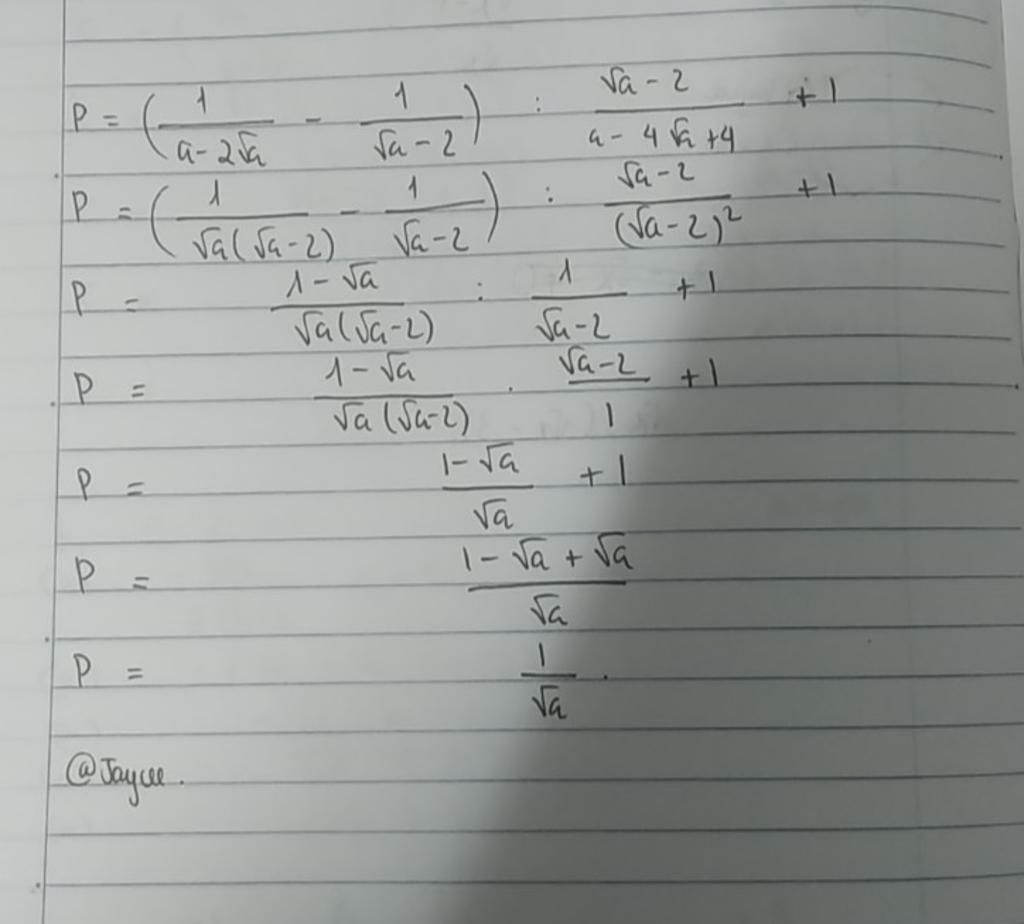 P = (1/(a-2√a) - 1/(√a-2)) : (√a-2)/(a-4√a+4) + 1
P = (1/(√a(√a-2)) - 1/(√a-2)) : (√a-2)/(√a-2)² + 1
P = (1-√a)/(√a(√a-2)) : 1/(√a-2) + 1
P = (1-√a)/(√a(√a-2)) . (√a-2)/1 + 1
P = (1-√a)/√a + 1
P = (1-√a+√a)/√a
P = 1/√a .
@Jaycee.